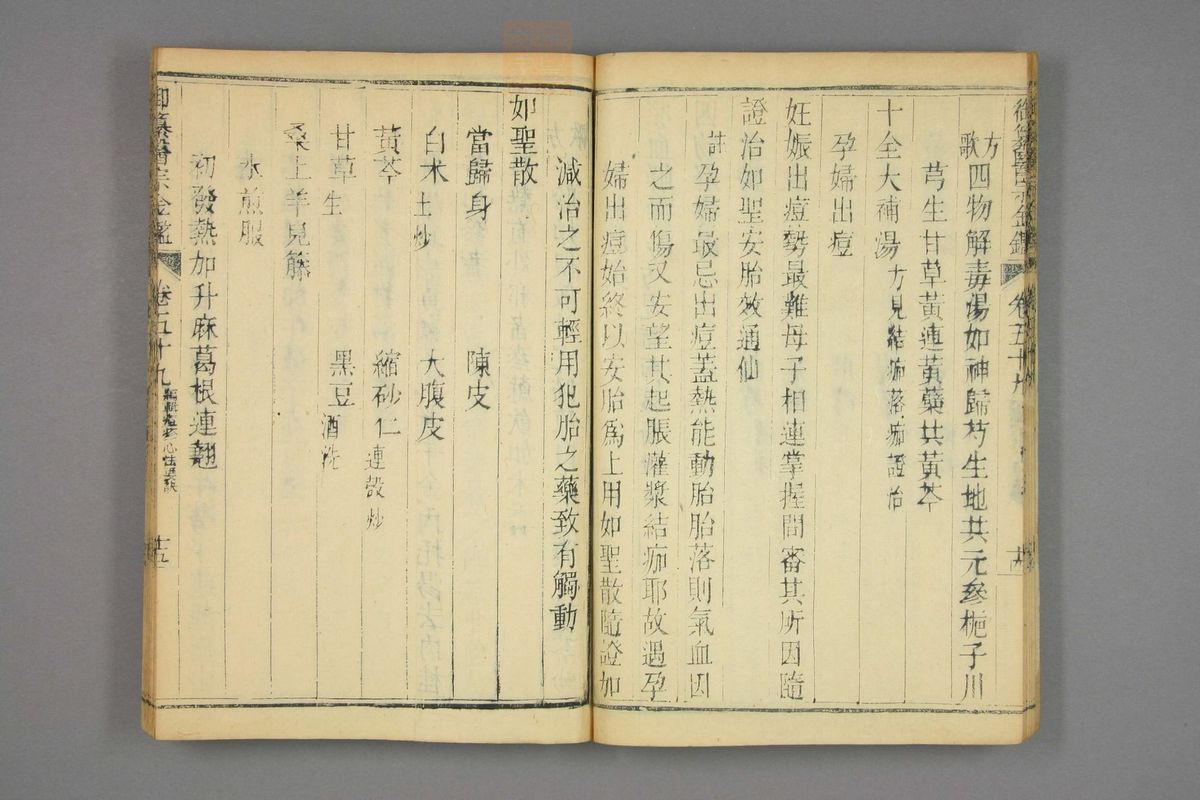 御纂醫宗金鑑
卷五十九
方歌 四物解毒湯如神歸芍生地共元參梔子川
芎生甘草黃連黃蘗共黃芩
十全大補湯 方見結痂落痂證治
孕婦出痘
妊娠出痘勢最難母子相連掌握間審其所因隨
證治如聖安胎效通仙
註 孕婦最忌出痘蓋熱能動胎胎落則氣血因
之而傷又安望其起脹灌漿結痂耶故遇孕
婦出痘始終以安胎爲上用如聖散隨證加
減治之不可輕用犯胎之藥致有觸動
如聖散
當歸身 陳皮
白术土炒 大腹皮
黃芩 縮砂仁連殼炒
甘草生 黑豆酒洗
桑上羊兒藤
水煎服
初發熱加升麻葛根連翹
御纂醫宗金鑑
卷五十九